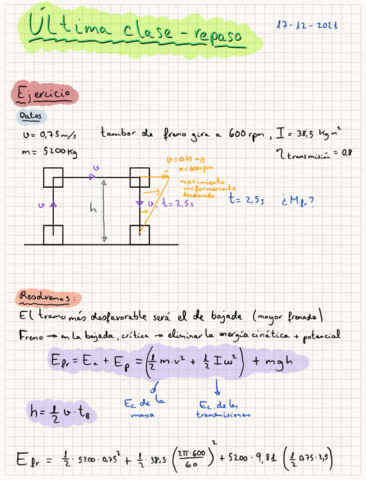 Última clase - repaso
17-12-2021
Ejercicio
Datos
v = 0,75 m/s   tambor de freno gira a 600 rpm, I = 38,5 kg m²
m = 5200 kg   η transmisión = 0,8
v
v = 0,75 m/s
n = 600 rpm
movimiento
uniformemente
decelerado
v   h   v, t = 2,5 s   t = 2,5 s   ¿Mfr?
Resolvemos:
El tramo más desfavorable será el de bajada (mayor frenado)
Freno → en la bajada, crítica → eliminar la energía cinética + potencial
Efr = Ec + Ep = (1/2 m·v² + 1/2 Iω²) + mgh
Ec de la masa
Ec de las transmisiones
h = 1/2 v·tB
Efr = 1/2 · 5200 · 0,75² + 1/2 · 38,5 (2π·600/60)² + 5200 · 9,81 (1/2 0,75·2,5)